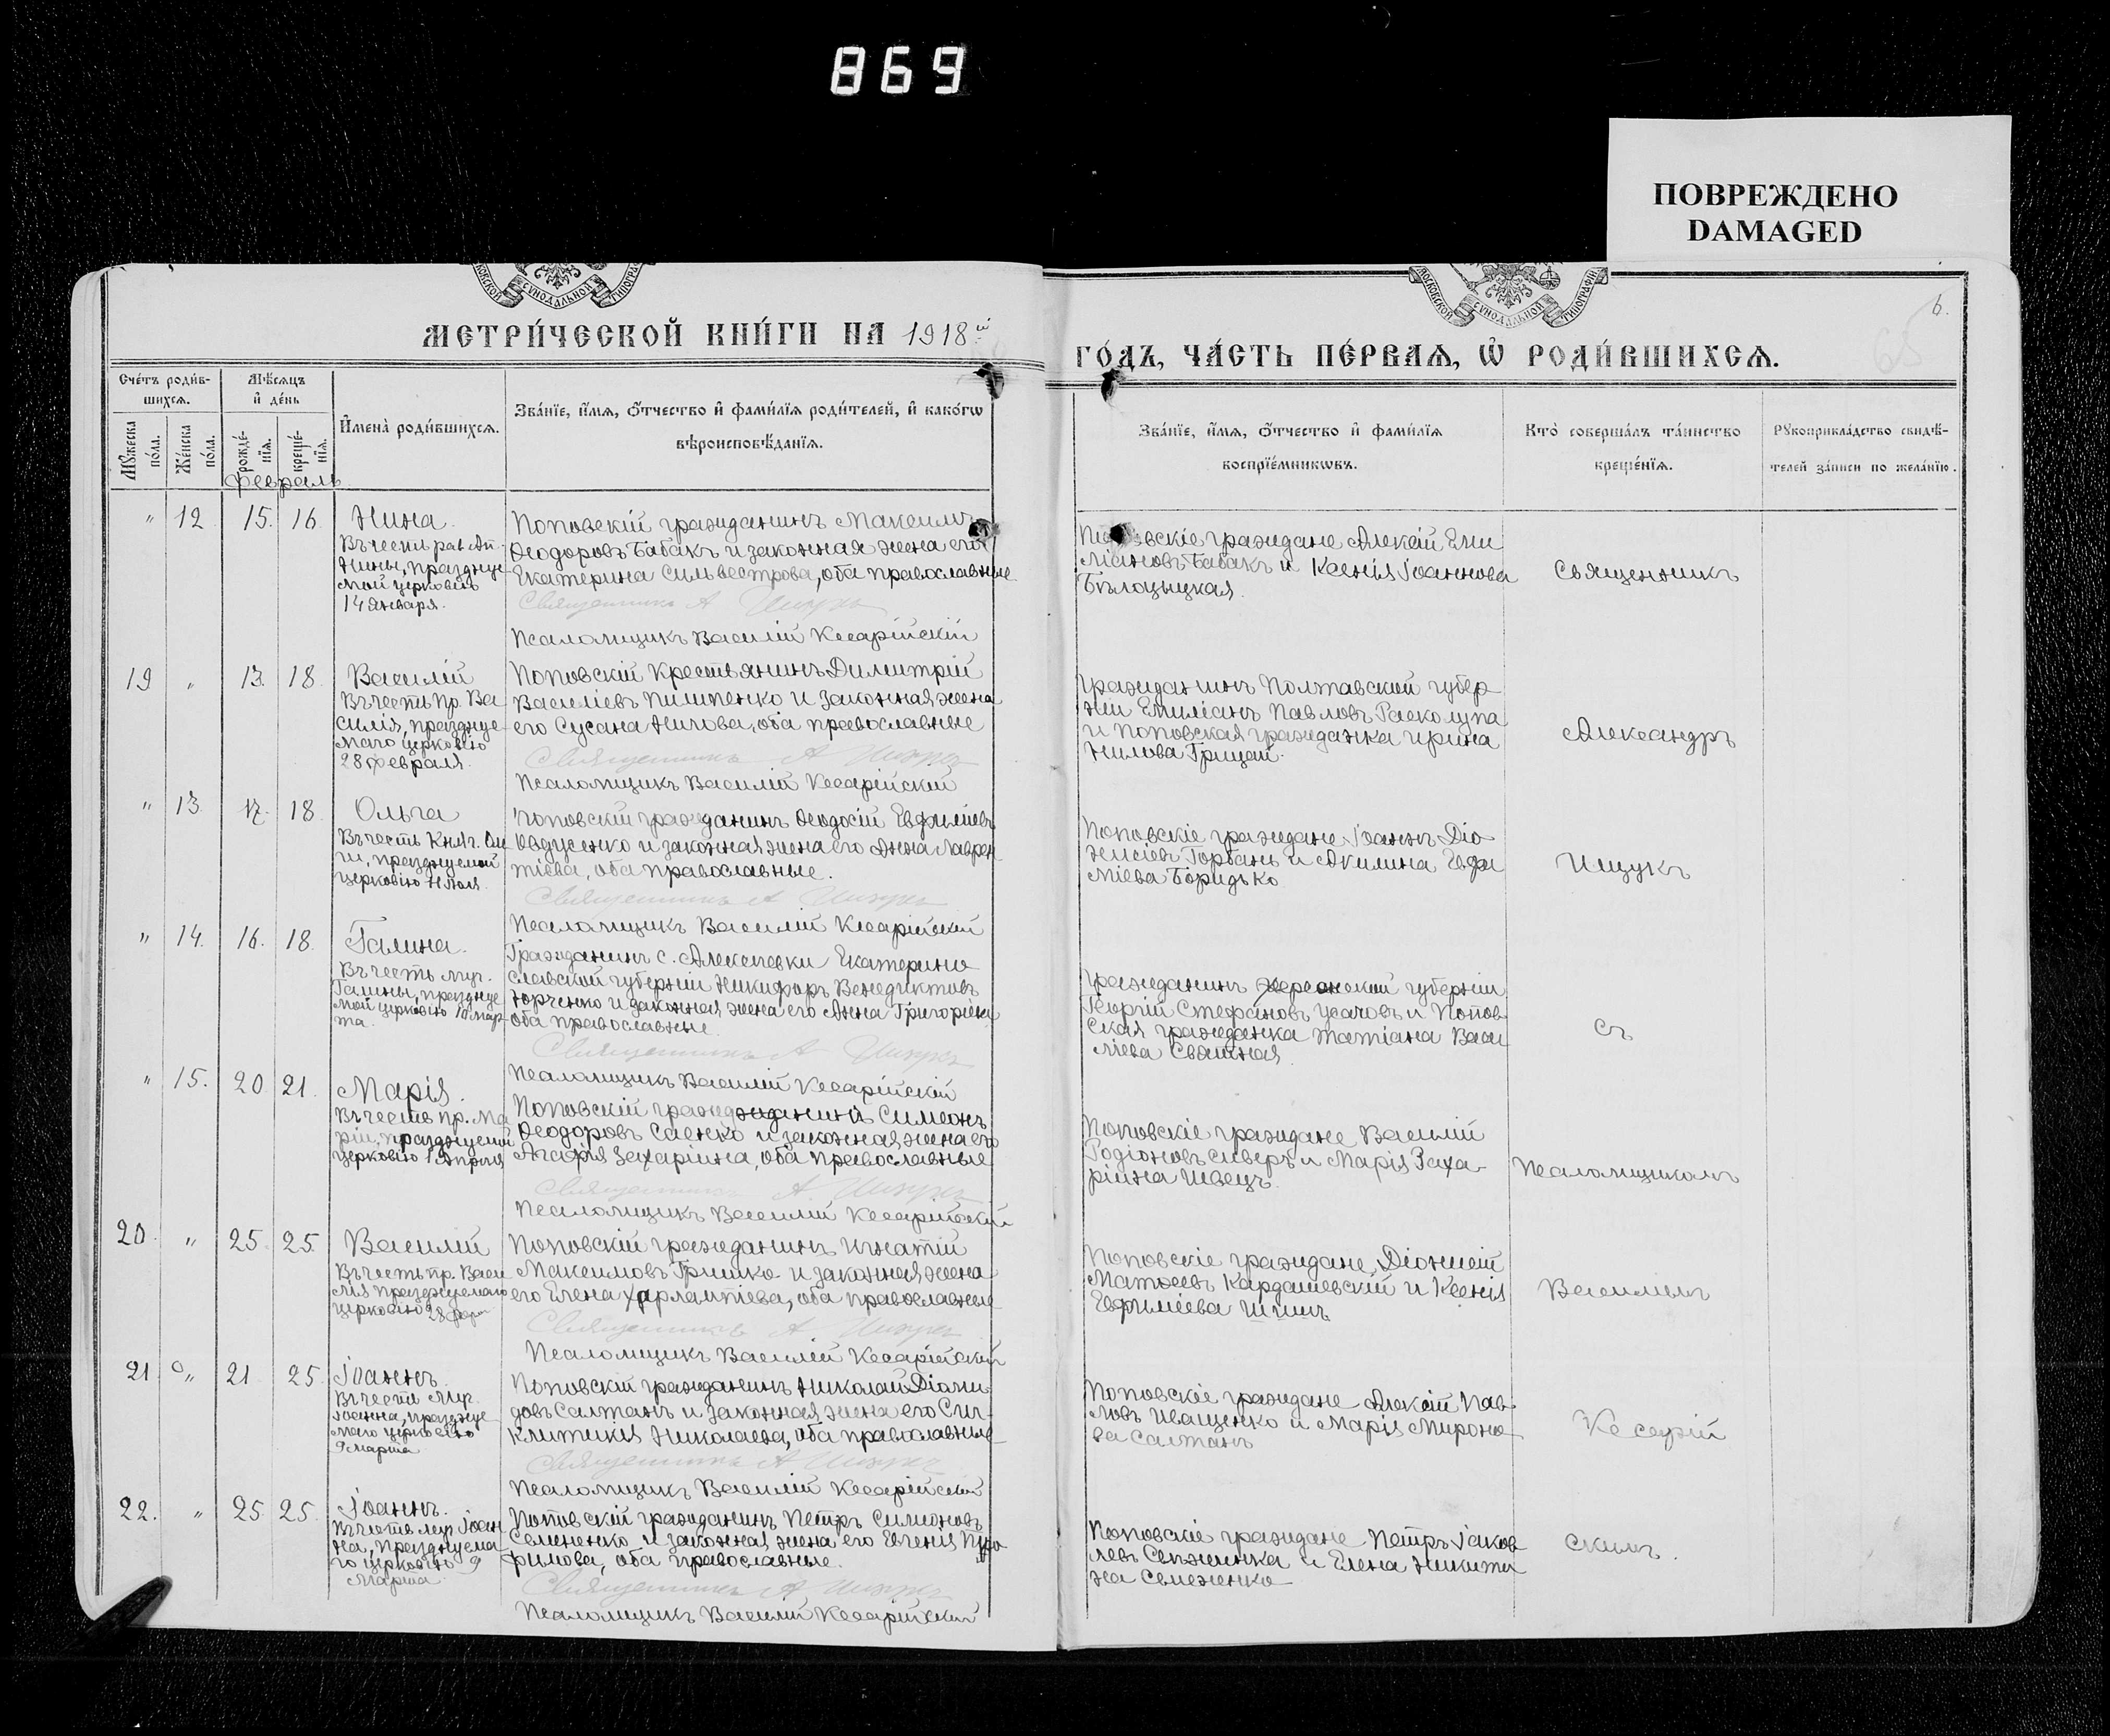 869
ПОВРЕЖДЕНО
DAMAGED
МОСКОВСКОЙ СѴНОДАЛЬНОЙ ТИПОГРАФІИ
МОСКОВСКОЙ СѴНОДАЛЬНОЙ ТИПОГРАФІИ
6.
65
МЕТРИ́ЧЕСКОЙ КНИ́ГИ НА 1918й
ГО́ДЪ, ЧА́СТЬ ПЕ́РВАѦ, Ѡ РОДИ́ВШИХСѦ.
Сче́тъ роди́в-
шихсѧ.
Мꙋжеска по́ла.
Же́нска по́ла.
Мѣ́сѧцъ
и҆ де́нь
рожде́-
нїѧ.
креще́-
нїѧ.
И҆мена̀ роди́вшихсѧ.
Зва́нїе, и҆́мѧ, ѻ҆́тчество и҆ фами́лїѧ роди́телей, и҆ како́гѡ
вѣроисповѣ́данїѧ.
Зва́нїе, и҆́мѧ, ѻ҆́тчество и҆ фами́лїѧ
воспрїе́мникѡвъ.
Кто̀ соверша́лъ та́инство
креще́нїѧ.
Рꙋкоприкла́дство свидѣ́-
телей за́писи по жела́нїю.
Февраль
" 12 15. 16.
Нина.
Въ честь рав. Ап.
Нины, празднуе
мой церковію
14 января.
Поповскій гражданинъ Максимъ
Ѳеодоровъ Бабакъ и законная жена его
Екатерина Сильвестрова, оба православные
Священникъ А Ищукъ
Псаломщикъ Василій Кесарійскій
Поповскіе граждане Алексій Еми
ліановъ Бабакъ и Ксенія Іоаннова
Бѣлоцыцкая.
Священникъ
19 " 13. 18.
Василій
Въ честь Пр. Ва
силія, празднуе
маго церковію
28 февраля.
Поповскій Крестьянинъ Димитрій
Василіевъ Пилипенко и законная жена
его Сусана Нилова, оба православные
Священникъ А Ищукъ
Псаломщикъ Василій Кесарійскій
Гражданинъ Полтавской губер
ніи Емиліанъ Павловъ Расколупа
и Поповская гражданка Ирина
Нилова Грицай.
Александръ
" 13. 17. 18.
Ольга
Въ честь Княг. Оль
ги, празднуемой
церковію 11 Іюля.
Поповскій гражданинъ Ѳеодосій Евфиміевъ
Овдусенко и законная жена его Анна Лаврен
тіева, оба православные.
Священникъ А Ищукъ
Псаломщикъ Василій Кесарійскій
Поповскіе граждане Іоаннъ Діо
нисіевъ Горбань и Акилина Евфи
міева Боридько
Ищукъ
" 14. 16. 18.
Галина.
Въ честь муч.
Галины, празднуе
мой церковію 10 мар
та.
Гражданинъ с. Алексѣевки Екатерино
славской губерніи Никифоръ Венедиктовъ
Юрченко и законная жена его Анна Григоріева
оба православные
Священникъ А Ищукъ
Псаломщикъ Василій Кесарійскій
Гражданинъ Херсонской губерніи
Георгій Стефановъ Усачовъ и Попов
ская гражданка Татіана Васи
ліева Сватная
съ
" 15. 20 21.
Марія.
Въ честь пр. Ма
ріи, празднуемой
церковію 1 Апрѣля
Поповскій гражданинъ Симеонъ
Ѳеодоровъ Саенко и законная жена его
Агафія Захаріина, оба православные
Священникъ А. Ищукъ
Псаломщикъ Василій Кесарійскій
Поповскіе граждане Василій
Родіоновъ Сиверъ и Марія Заха-
ріина Швецъ.
Псаломщикомъ
20. " 25. 25.
Василій
Въ честь пр. Васи
лія празднуемаго
церковію 28 фев
Поповскій гражданинъ Игнатій
Максимовъ Гришко и законная жена
его Елена Харлампіева, оба православные
Священникъ А Ищукъ
Псаломщикъ Василій Кесарійскій
Поповскіе граждане Діонисій
Матѳеевъ Кардашевскій и Ксенія
Евфиміева Шишъ
Василіемъ
21 " 21. 25.
Іоаннъ.
Въ честь Муч.
Іоанна, празднуе
маго церковію
9 марта
Поповскій гражданинъ Николай Діоми
довъ Салтанъ и законная жена его Син-
клитикія Николаева, оба православные
Священникъ А Ищукъ
Псаломщикъ Василій Кесарійскій
Поповскіе граждане Алексій Пав
ловъ Иващенко и Марія Мироно
ва Салтанъ
Кесарій
22. " 25. 25.
Іоаннъ.
Въ честь муч. Іоан
на, празднуема
го церковію 9
Марта.
Поповскій гражданинъ Петръ Симеоновъ
Семененко и законная жена его Евгенія Про
фимова, оба православные.
Священникъ А Ищукъ
Псаломщикъ Василій Кесарійскій
Поповскіе граждане Петръ Іаков
левъ и Елена Никити
на Семененко
скимъ.